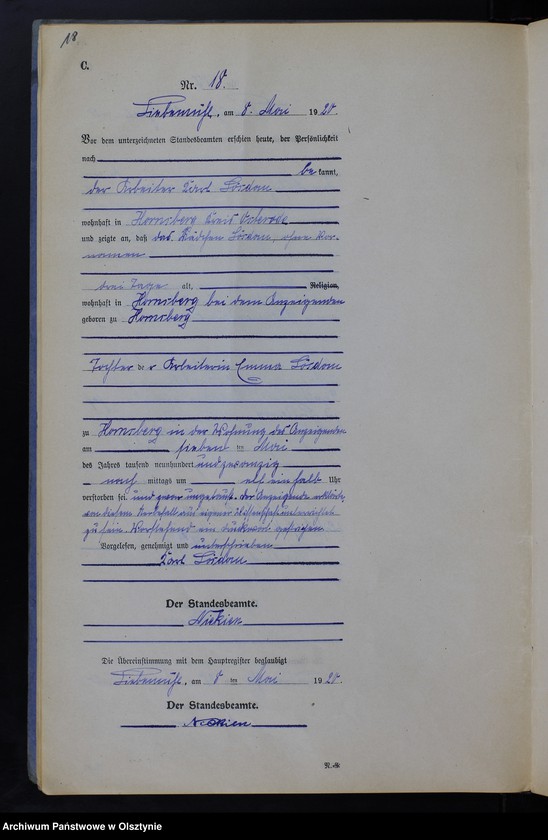 18
C.
Nr. 18.
Liebemühl, am 8. Mai 1920.
Vor dem unterzeichneten Standesbeamten erschien heute, der Persönlichkeit
nach
be kannt,
der Arbeiter Karl
wohnhaft in Hornsberg Kreis Osterode
und zeigte an, daß das Mädchen ohne Vor-
namen
drei Tage alt, Religion,
wohnhaft in Hornsberg bei dem Anzeigenden
geboren zu Hornsberg
Tochter der Arbeiterin Emma
zu Hornsberg in der Wohnung des Anzeigenden
am sieben ten Mai
des Jahres tausend neunhundert undzwanzig
nach mittags um elf einhalb Uhr
verstorben sei, und zwar ungetauft. Der Anzeigende erklärte
von diesem Sterbefall aus eigener Wissenschaft unterrichtet
zu sein. Vorstehend ein Druckwort gestrichen
Vorgelesen, genehmigt und unterschrieben
Karl
Der Standesbeamte.
Die Übereinstimmung mit dem Hauptregister beglaubigt
Liebemühl, am 8 ten Mai 1920.
Der Standesbeamte.
Archiwum Państwowe w Olsztynie